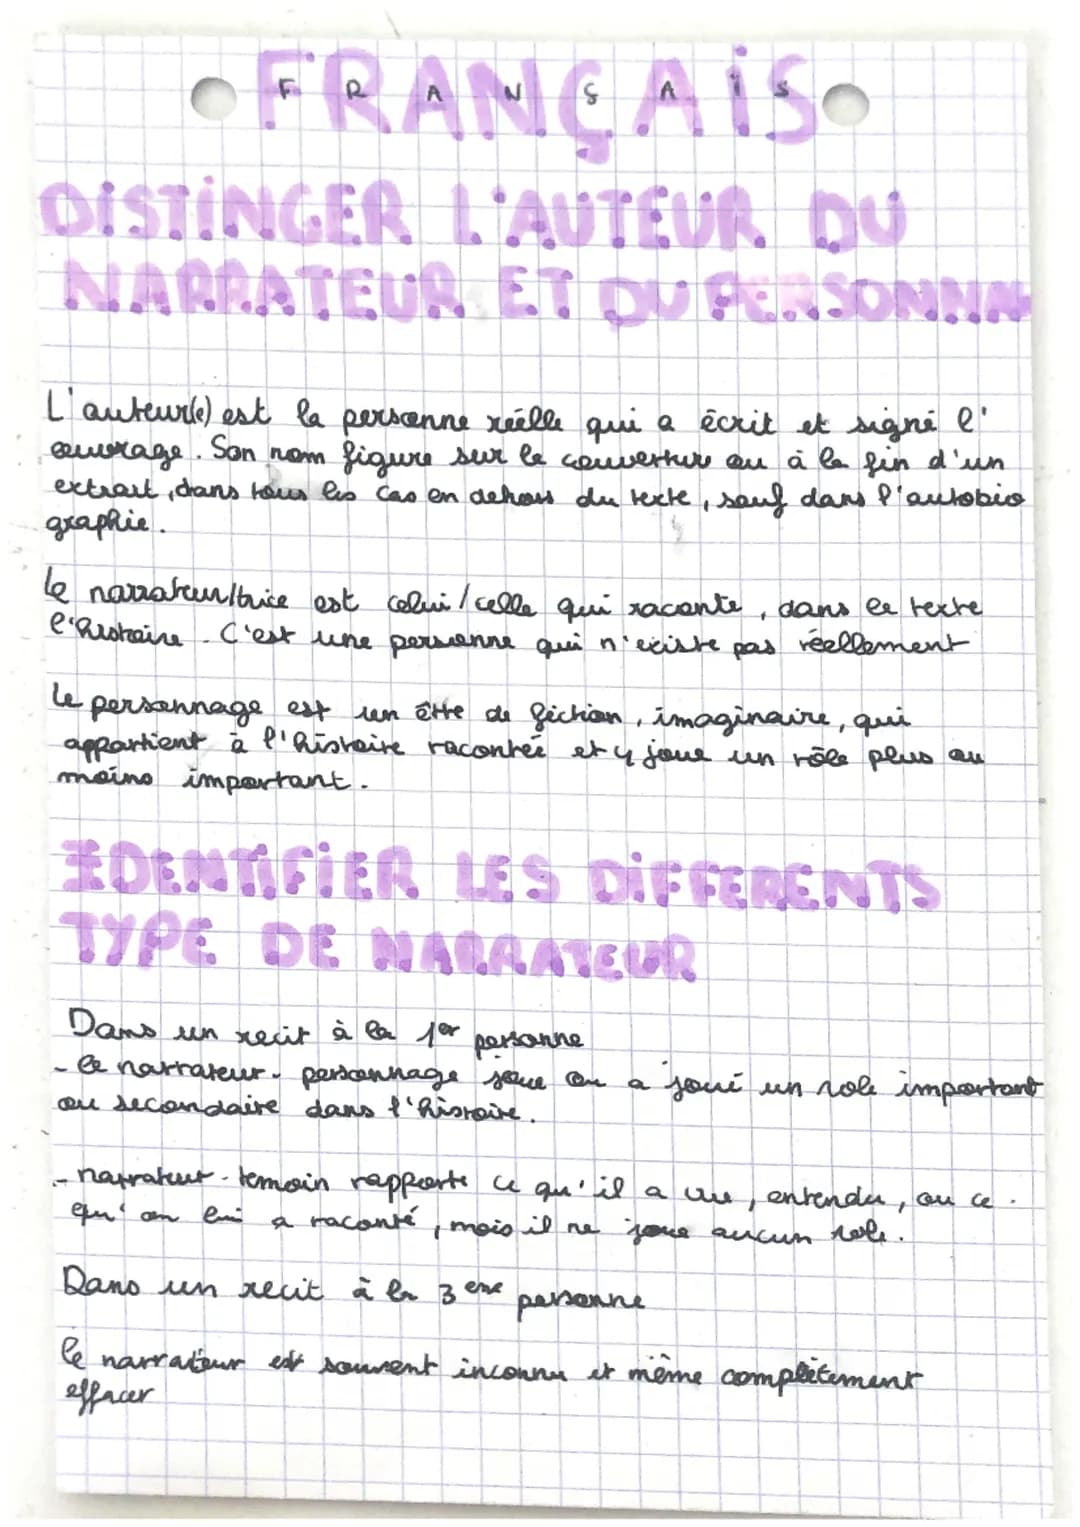 FRANÇAIS
F R A N Ç A I S
DISTINGER L'AUTEUR DU
NARRATEUR ET DU PERSONNA
L'auteur(e) est la personne réélle qui a écrit et signé l'
œuvrage. Son nom figure sur la couverture ou à la fin d'un
extrait, dans tous les cas en dehors du texte, sauf dans l'autobio
graphie.
le narrateur/trice est celui/celle qui raconte, dans le texte
l'histoire. C'est une personne qui n'existe pas réellement
le personnage est un être de fiction, imaginaire, qui
appartient à l'histoire racontée et y joue un rôle plus ou
moins important.
IDENTIFIER LES DIFFERENTS
TYPE DE NARRATEUR
Dans un recit à la 1er personne
- le narrateur-personnage joue ou a joué un role important
ou secondaire dans l'histoire.
- narrateur-temoin rapporte ce qu'il a vu, entendu, ou ce
qu'on lui a raconté, mais il ne joue aucun role.
Dans un recit à la 3eme personne
le narrateur est souvent inconnu et même complètement
effacer